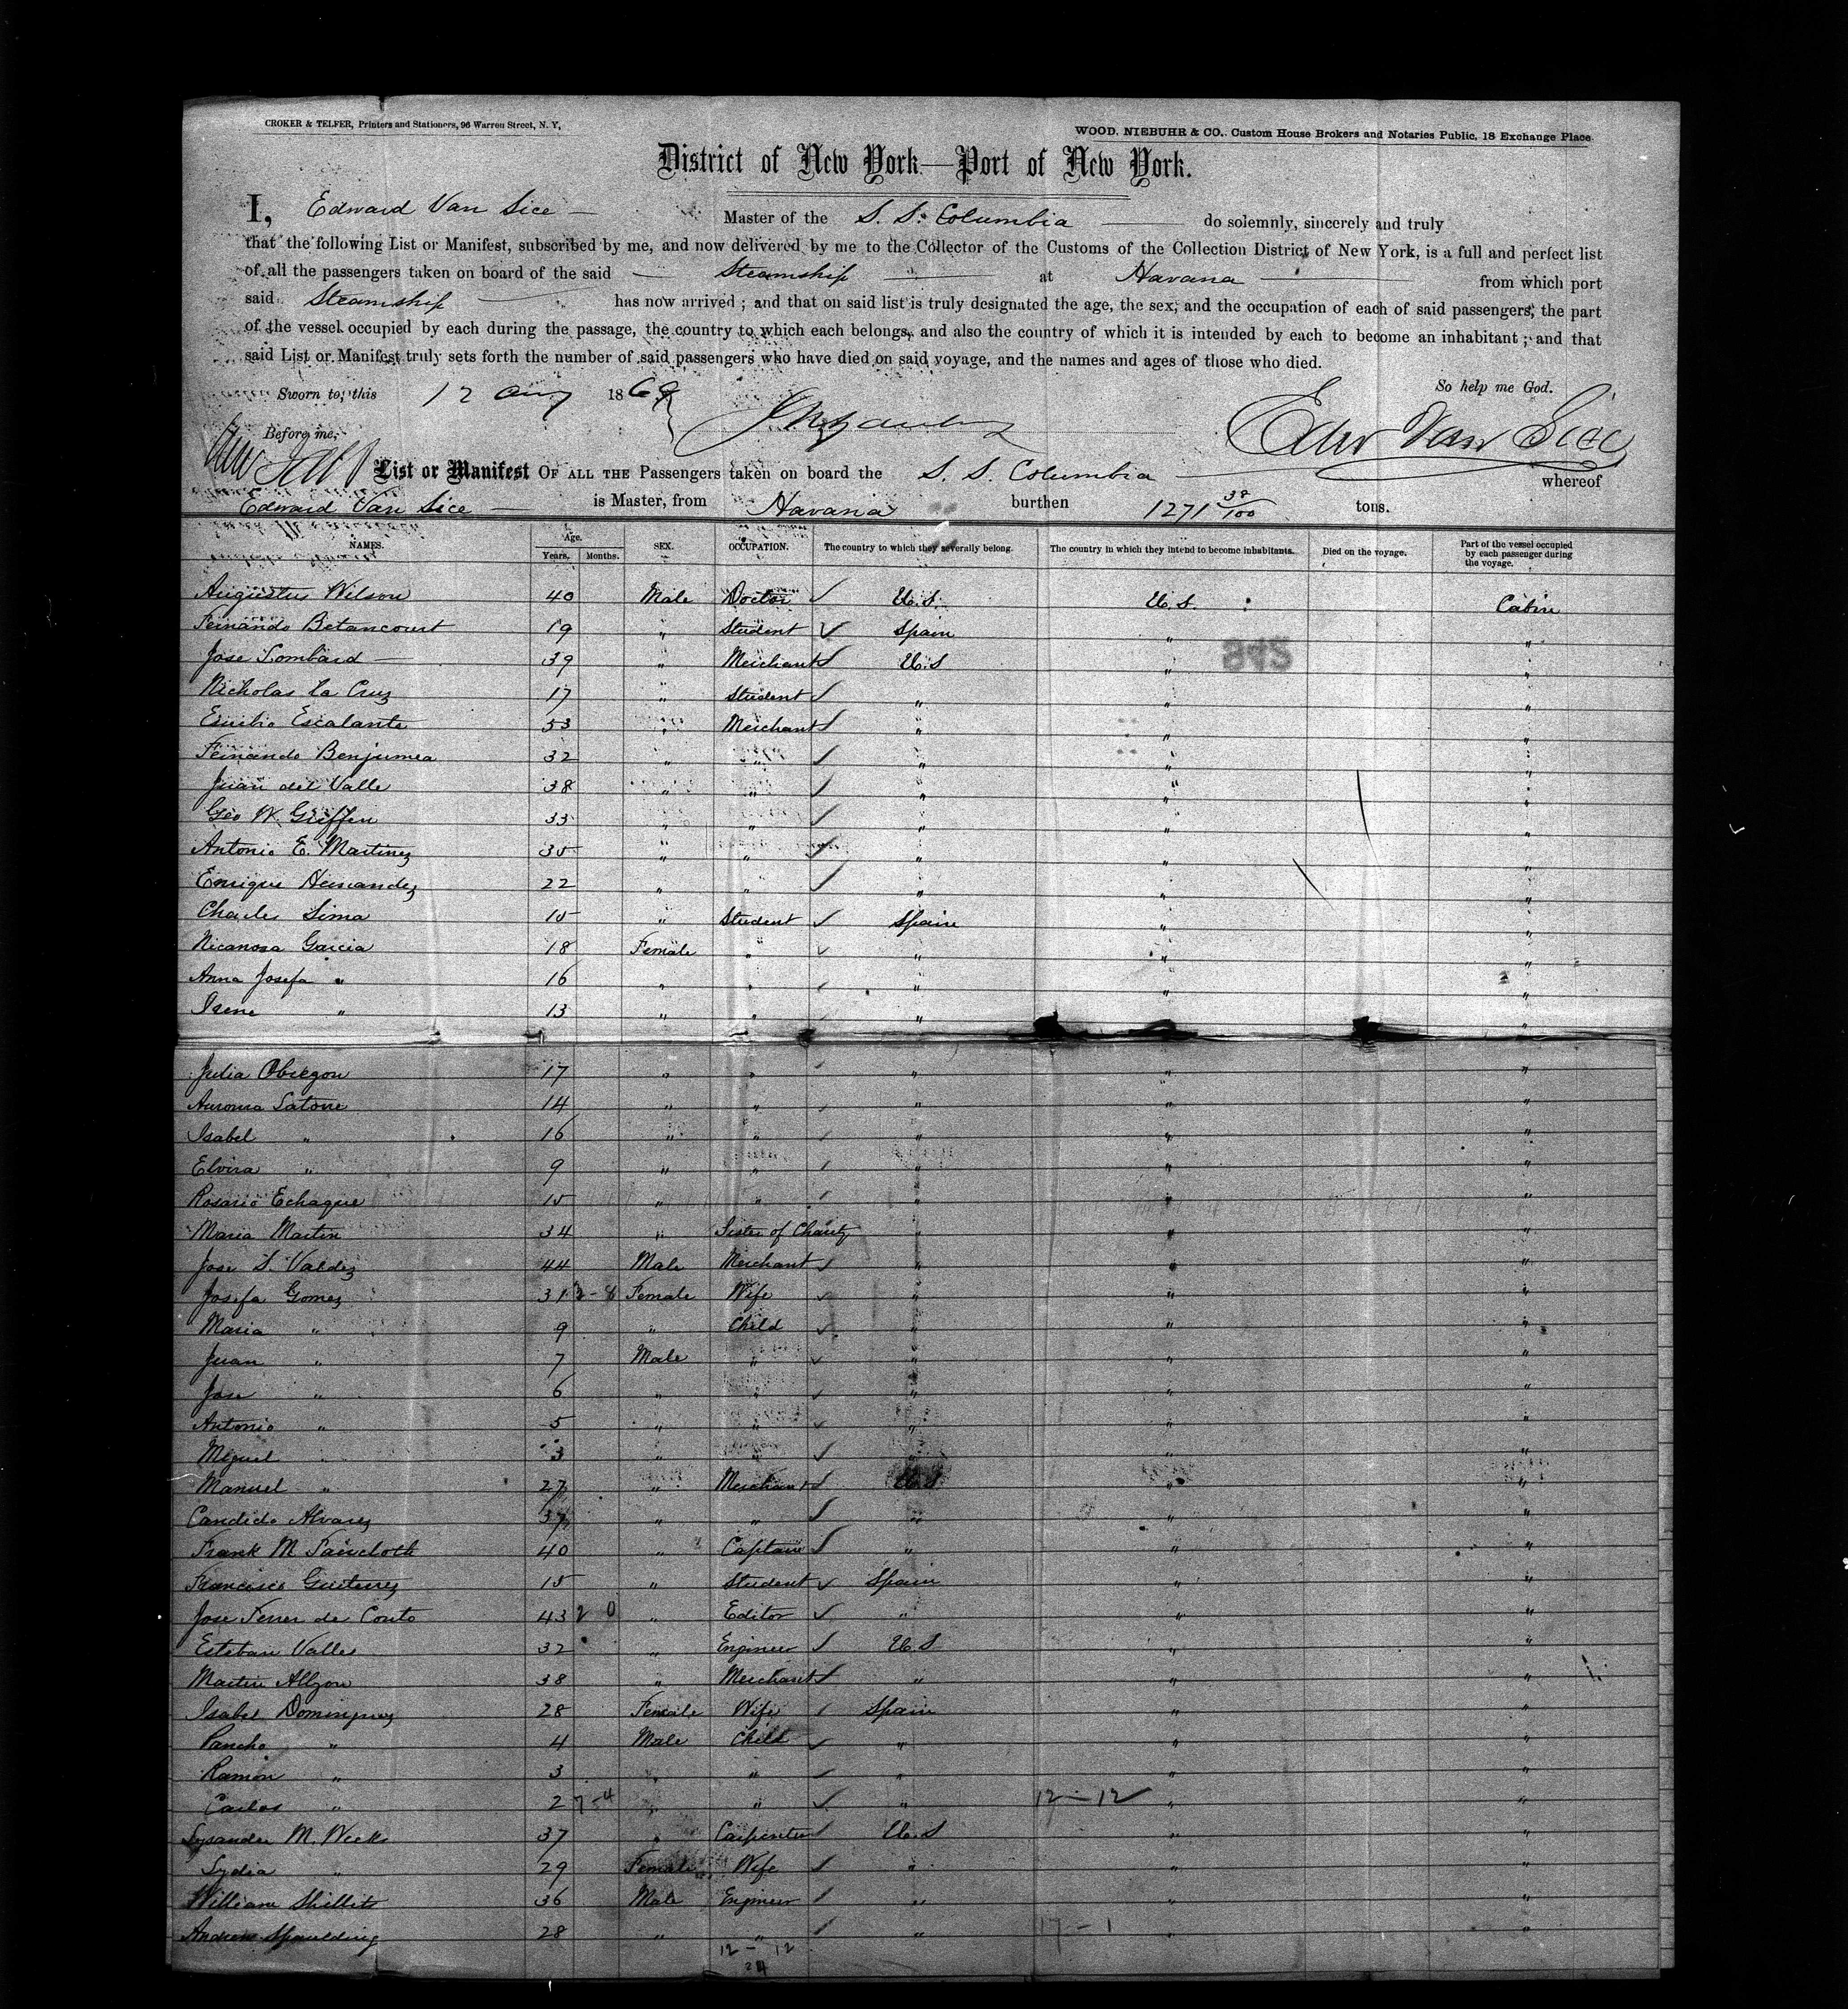 CROKER & TELFER, Printers and Stationers, 96 Warren Street, N. Y,
WOOD, NIEBUHR & CO., Custom House Brokers and Notaries Public, 18 Exchange Place.
District of New York—Port of New York.
I, Edward Van Sice — Master of the S. S. Columbia — do solemnly, sincerely and truly
that the following List or Manifest, subscribed by me, and now delivered by me to the Collector of the Customs of the Collection District of New York, is a full and perfect list
of all the passengers taken on board of the said — Steamship — at Havana — from which port
said Steamship — has now arrived ; and that on said list is truly designated the age, the sex, and the occupation of each of said passengers, the part
of the vessel occupied by each during the passage, the country to which each belongs, and also the country of which it is intended by each to become an inhabitant ; and that
said List or Manifest truly sets forth the number of said passengers who have died on said voyage, and the names and ages of those who died.
So help me God.
Sworn to, this 12 Aug 1869
Before me,
Edw Van Sice
List or Manifest OF ALL THE Passengers taken on board the S. S. Columbia — whereof
Edward Van Sice — is Master, from Havana burthen 1271 38/100 tons.
NAMES. Age. Years. Months. SEX. OCCUPATION. The country to which they severally belong. The country in which they intend to become inhabitants. Died on the voyage. Part of the vessel occupied by each passenger during the voyage.
Augustus Wilson 40 Male Doctor ✓ U.S. U.S. Cabin
Fernando Betancourt 19 " Student ✓ Spain " "
Jose Lombard — 39 " Merchant ✓ U.S " "
Nicholas La Cruz 17 " Student ✓ " " "
Eusibio Escalante 53 " Merchant ✓ " " "
Fernando Benjumea 32 " " ✓ " " "
Juan del Valle 38 " " ✓ " " "
Geo W. Griffen 33 " " ✓ " " "
Antonio E. Martinez 35 " " ✓ " " "
Enrique Hernandez 22 " " ✓ " " "
Charles Lima 15 " Student ✓ Spain " "
Nicanosa Garcia 18 Female " ✓ " " "
Anna Josefa " 16 " " ✓ " " "
Irene " 13 " " ✓ " " "
Julia Obregon 17 " " ✓ " " "
Aurora Latorre 14 " " ✓ " " "
Isabel " 16 " " ✓ " " "
Elvira " 9 " " ✓ " " "
Rosario Echaque 15 " " ✓ " " "
Maria Martin 34 " Sister of Charity " " "
Jose S. Valdez 44 Male Merchant ✓ " " "
Josefa Gomez 31 Female Wife ✓ " " "
Maria " 9 " Child ✓ " " "
Juan " 7 Male " ✓ " " "
Jose " 6 " " ✓ " " "
Antonio " 5 " " ✓ " " "
Miguel " 3 " " ✓ " " "
Manuel " 27 " Merchant ✓ U.S " "
Candido Alvarez 37 " " ✓ " " "
Frank M. Faircloth 40 " Captain ✓ " " "
Francisco Gutierrez 15 " Student ✓ Spain " "
Jose Ferrer de Couto 43 2 0 " Editor ✓ " " "
Esteban Valles 32 " Engineer ✓ U.S " "
Martin 38 " Merchant ✓ " " "
Isabel Dominguez 28 Female Wife ✓ Spain " "
Pancho " 4 Male Child ✓ " " "
Ramon " 3 " " ✓ " " "
Carlos " 2 7-4 " " ✓ " 12-12 ✓ " "
Lysander M. Weeks 37 " Carpenter ✓ U.S " "
Lydia " 29 Female Wife ✓ " " "
William Shillito 36 Male Engineer ✓ " " "
Andrew Spaulding 28 " " ✓ " 17-1 "
12 - 12
24